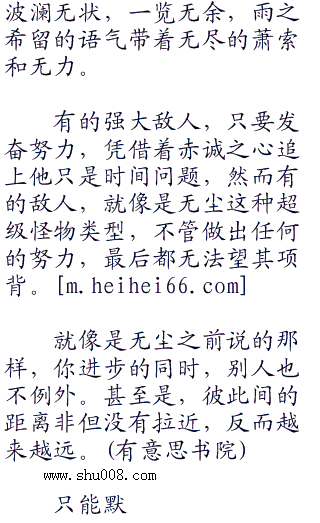 波澜无状，一览无余，雨之
希留的语气带着无尽的萧索
和无力。
有的强大敌人，只要发
奋努力，凭借着赤诚之心追
上他只是时间问题，然而有
的敌人，就像是无尘这种超
级怪物类型，不管做出任何
的努力，最后都无法望其项
背。[m.heihei66.com]
就像是无尘之前说的那
样，你进步的同时，别人也
不例外。甚至是，彼此间的
距离非但没有拉近，反而越
来越远。(有意思书院)
www.shu008.com
只能默